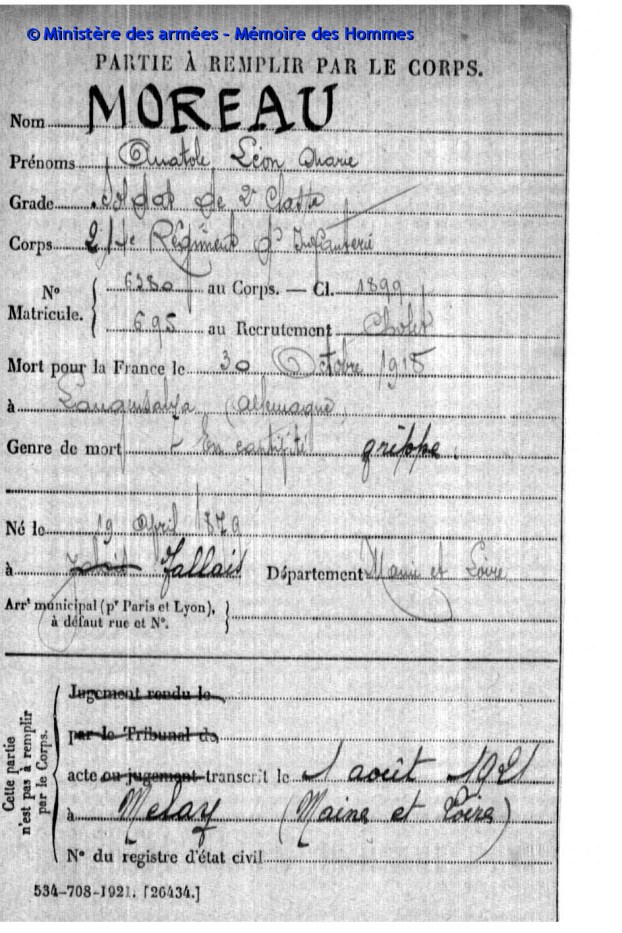 © Ministère des armées - Mémoire des Hommes
PARTIE À REMPLIR PAR LE CORPS.
Nom MOREAU
Prénoms Anatole Léon Marie
Grade Soldat de 2e Classe
Corps Régiment d'Infanterie
N° Matricule. 6280 au Corps. — Cl. 1899
695 au Recrutement Cholet
Mort pour la France le 30 Octobre 1918
à Langensalza (Allemagne)
Genre de mort En captivité grippe.
Né le 19 April 1879
à Jallais Département Maine et Loire
Arrt municipal (pr Paris et Lyon),
à défaut rue et N°.
Cette partie
n'est pas à remplir
par le Corps.
Jugement rendu le
par le Tribunal de
acte ou jugement transcrit le 1 août 1921
à Melay (Maine et Loire)
N° du registre d'état civil
534-708-1921. [26434.]